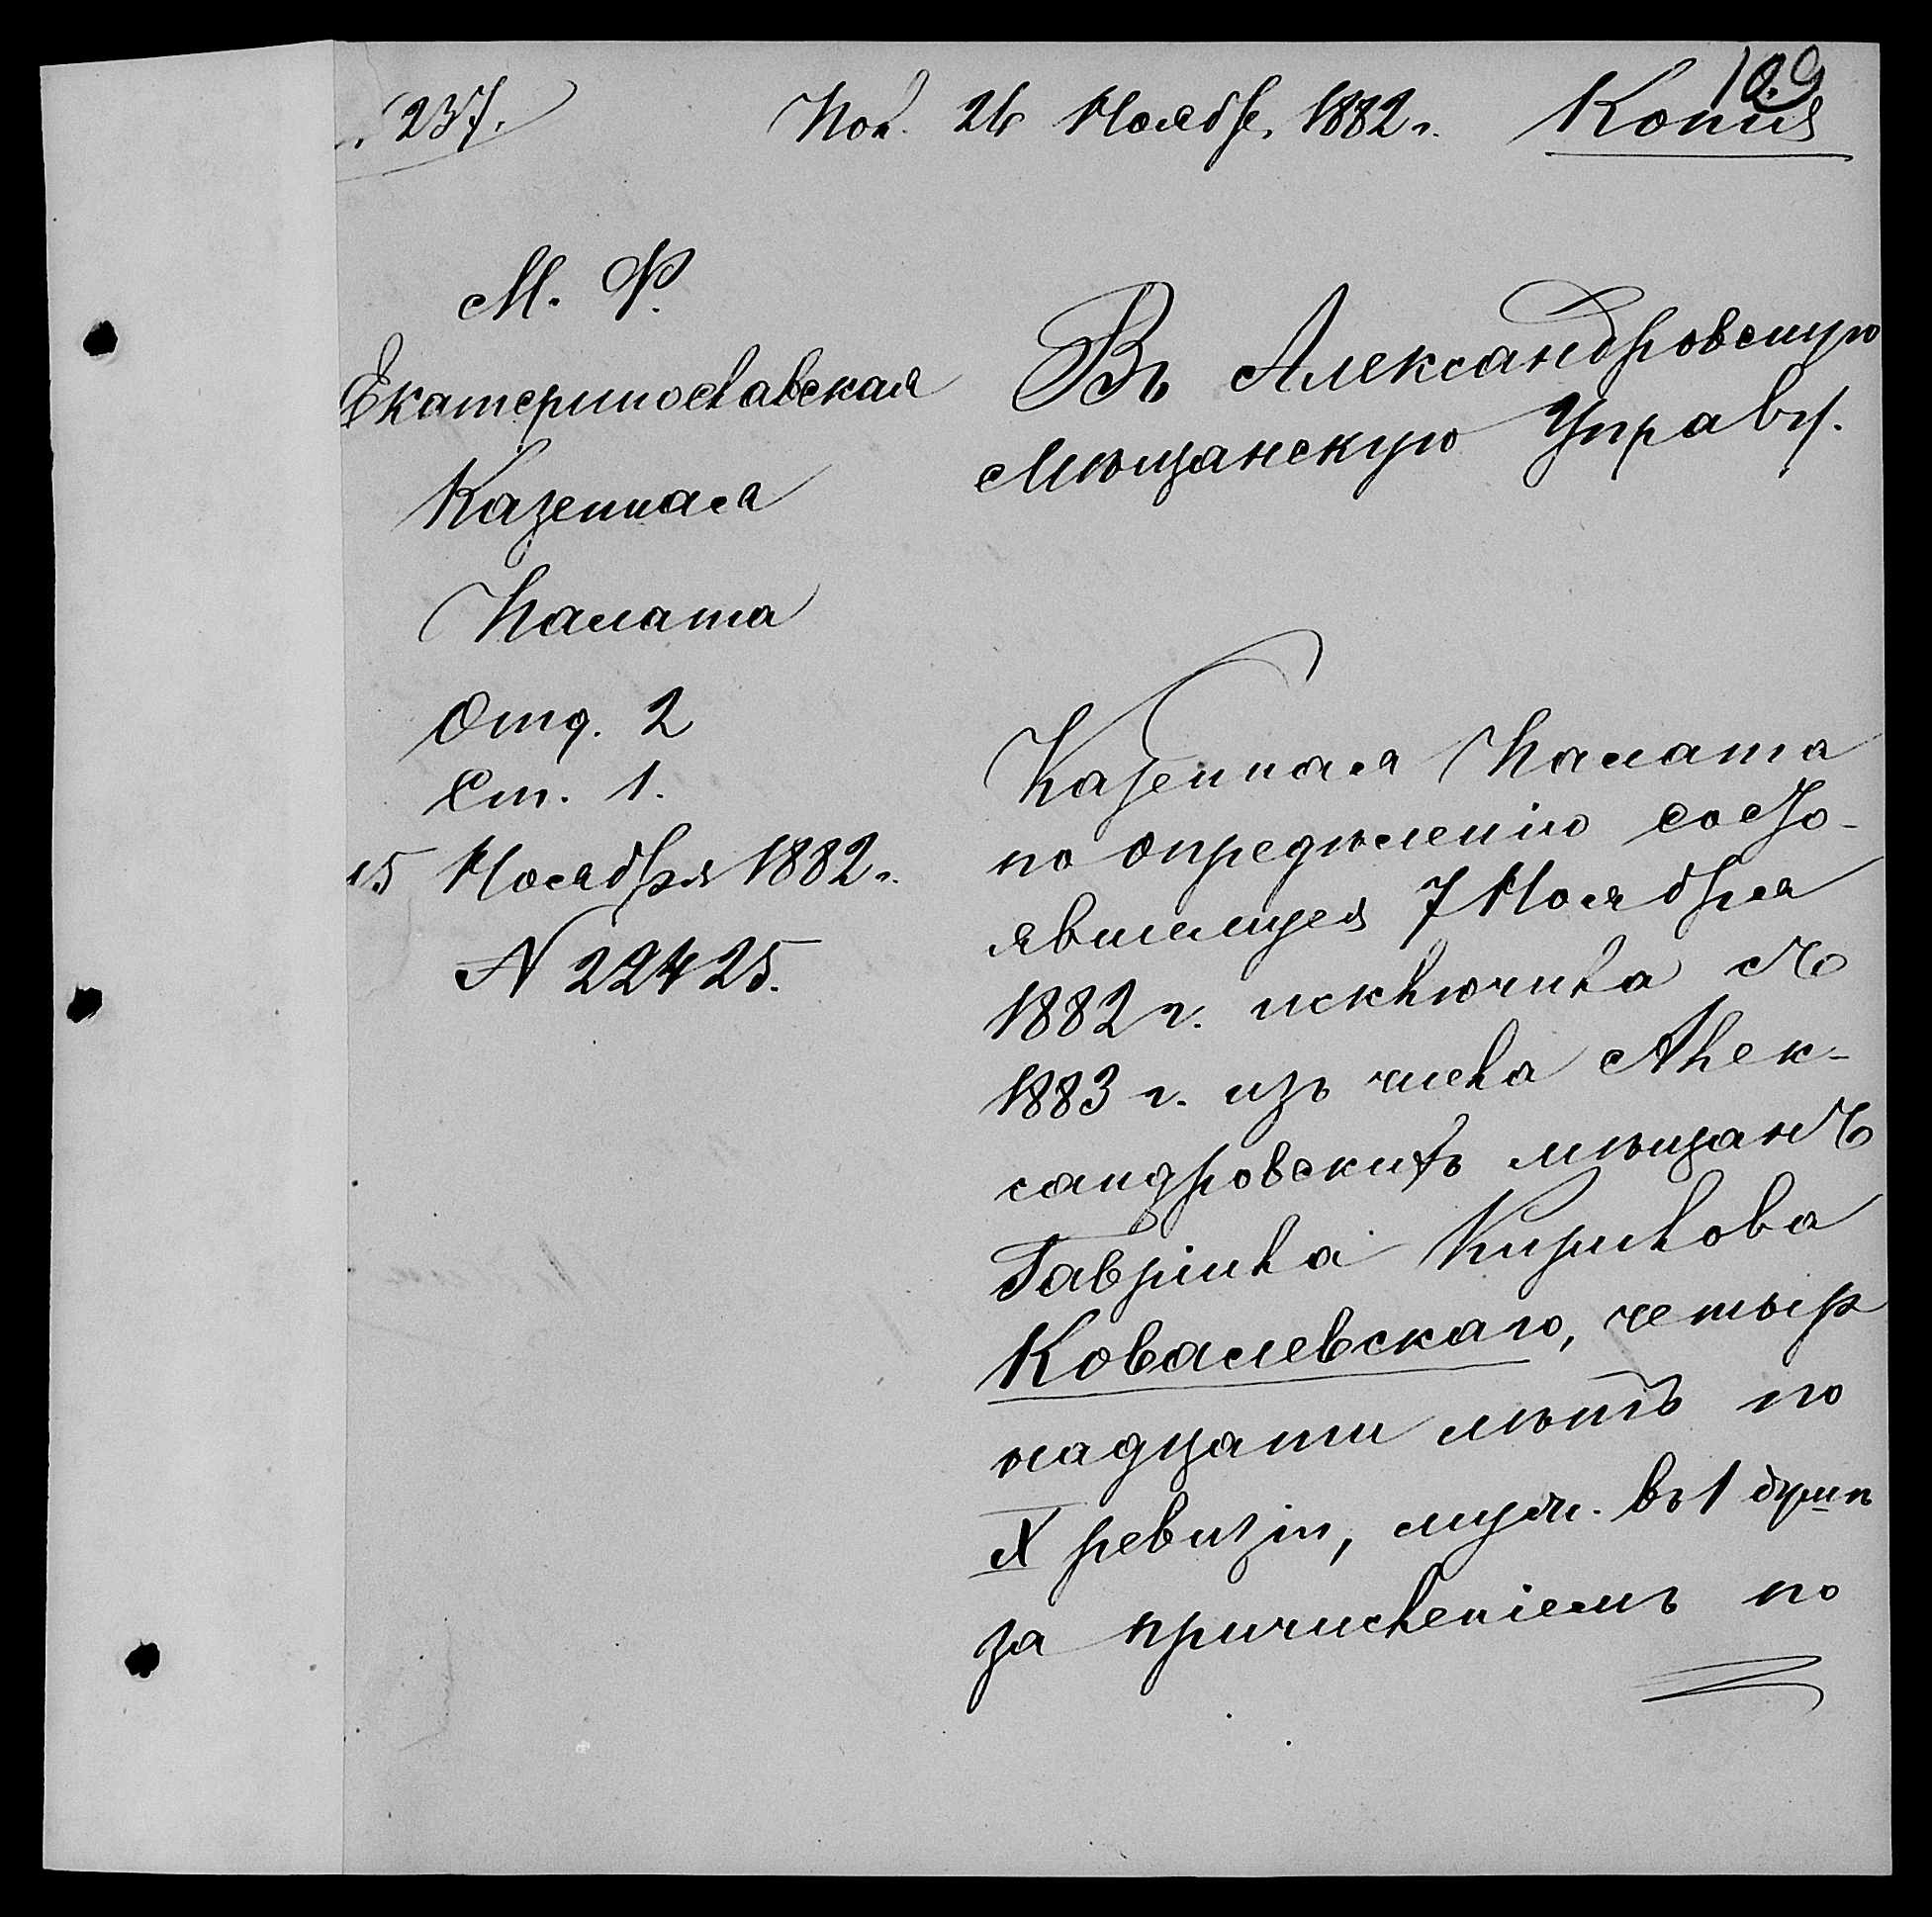 109
237. Пол. 26 Ноябр. 1882 г. Копия
М. Ф.
Екатеринославская
Казенная
Палата
Отд. 2
Ст. 1.
15 Ноября 1882 г.
N 22425.
Въ Александровскую
Мѣщанскую Управу.
Казенная Палата
по опредѣленію состо-
явшемуся 7 Ноября
1882 г. исключила съ
1883 г. изъ числа Алек-
сандровскихъ мѣщанъ
Гавріила Кирилова
Ковалевскаго, четыр
надцати лѣтъ по
X ревизіи, муж. въ 1 душѣ
за причисленіемъ по